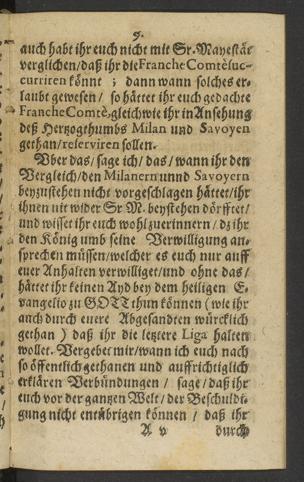 9.
auch habt ihr euch nicht mit Sr. Mayestät
verglichen/ daß ihr die Franche Comtè suc-
curriren könnt ; dann wann solches er-
laubt gewesen/ so hättet ihr euch gedachte
Franche Comtè, gleich wie ihr in Ansehung
deß Hertzogthumbs Milan und Savoyen
gethan/ reserviren sollen.
Vber das/ sage ich/ das/ wann ihr den
Vergleich/ den Milanern unnd Savoyern
beyzustehen nicht vorgeschlagen hättet/ ihr
ihnen nit wider Sr M. beystehen dörfftet/
und wisset ihr euch wohl zuerinnern/ dz ihr
den König umb seine Verwilligung an-
sprechen müssen/ welcher es euch nur auff
euer Anhalten verwilliget/ und ohne das/
hättet ihr keinen Ayd bey dem heiligen E-
vangelio zu GOTT thun können (wie ihr
auch durch euere Abgesandten würcklich
gethan ) daß ihr die letztere Liga halten
wollet. Vergebet mir/ wann ich euch nach
so öffentlich gethanen und auffrichtiglich
erklären Verbündungen / sage/ daß ihr
euch vor der gantzen Welt/ der Beschuldi-
gung nicht entübrigen können / daß ihr
A v durch